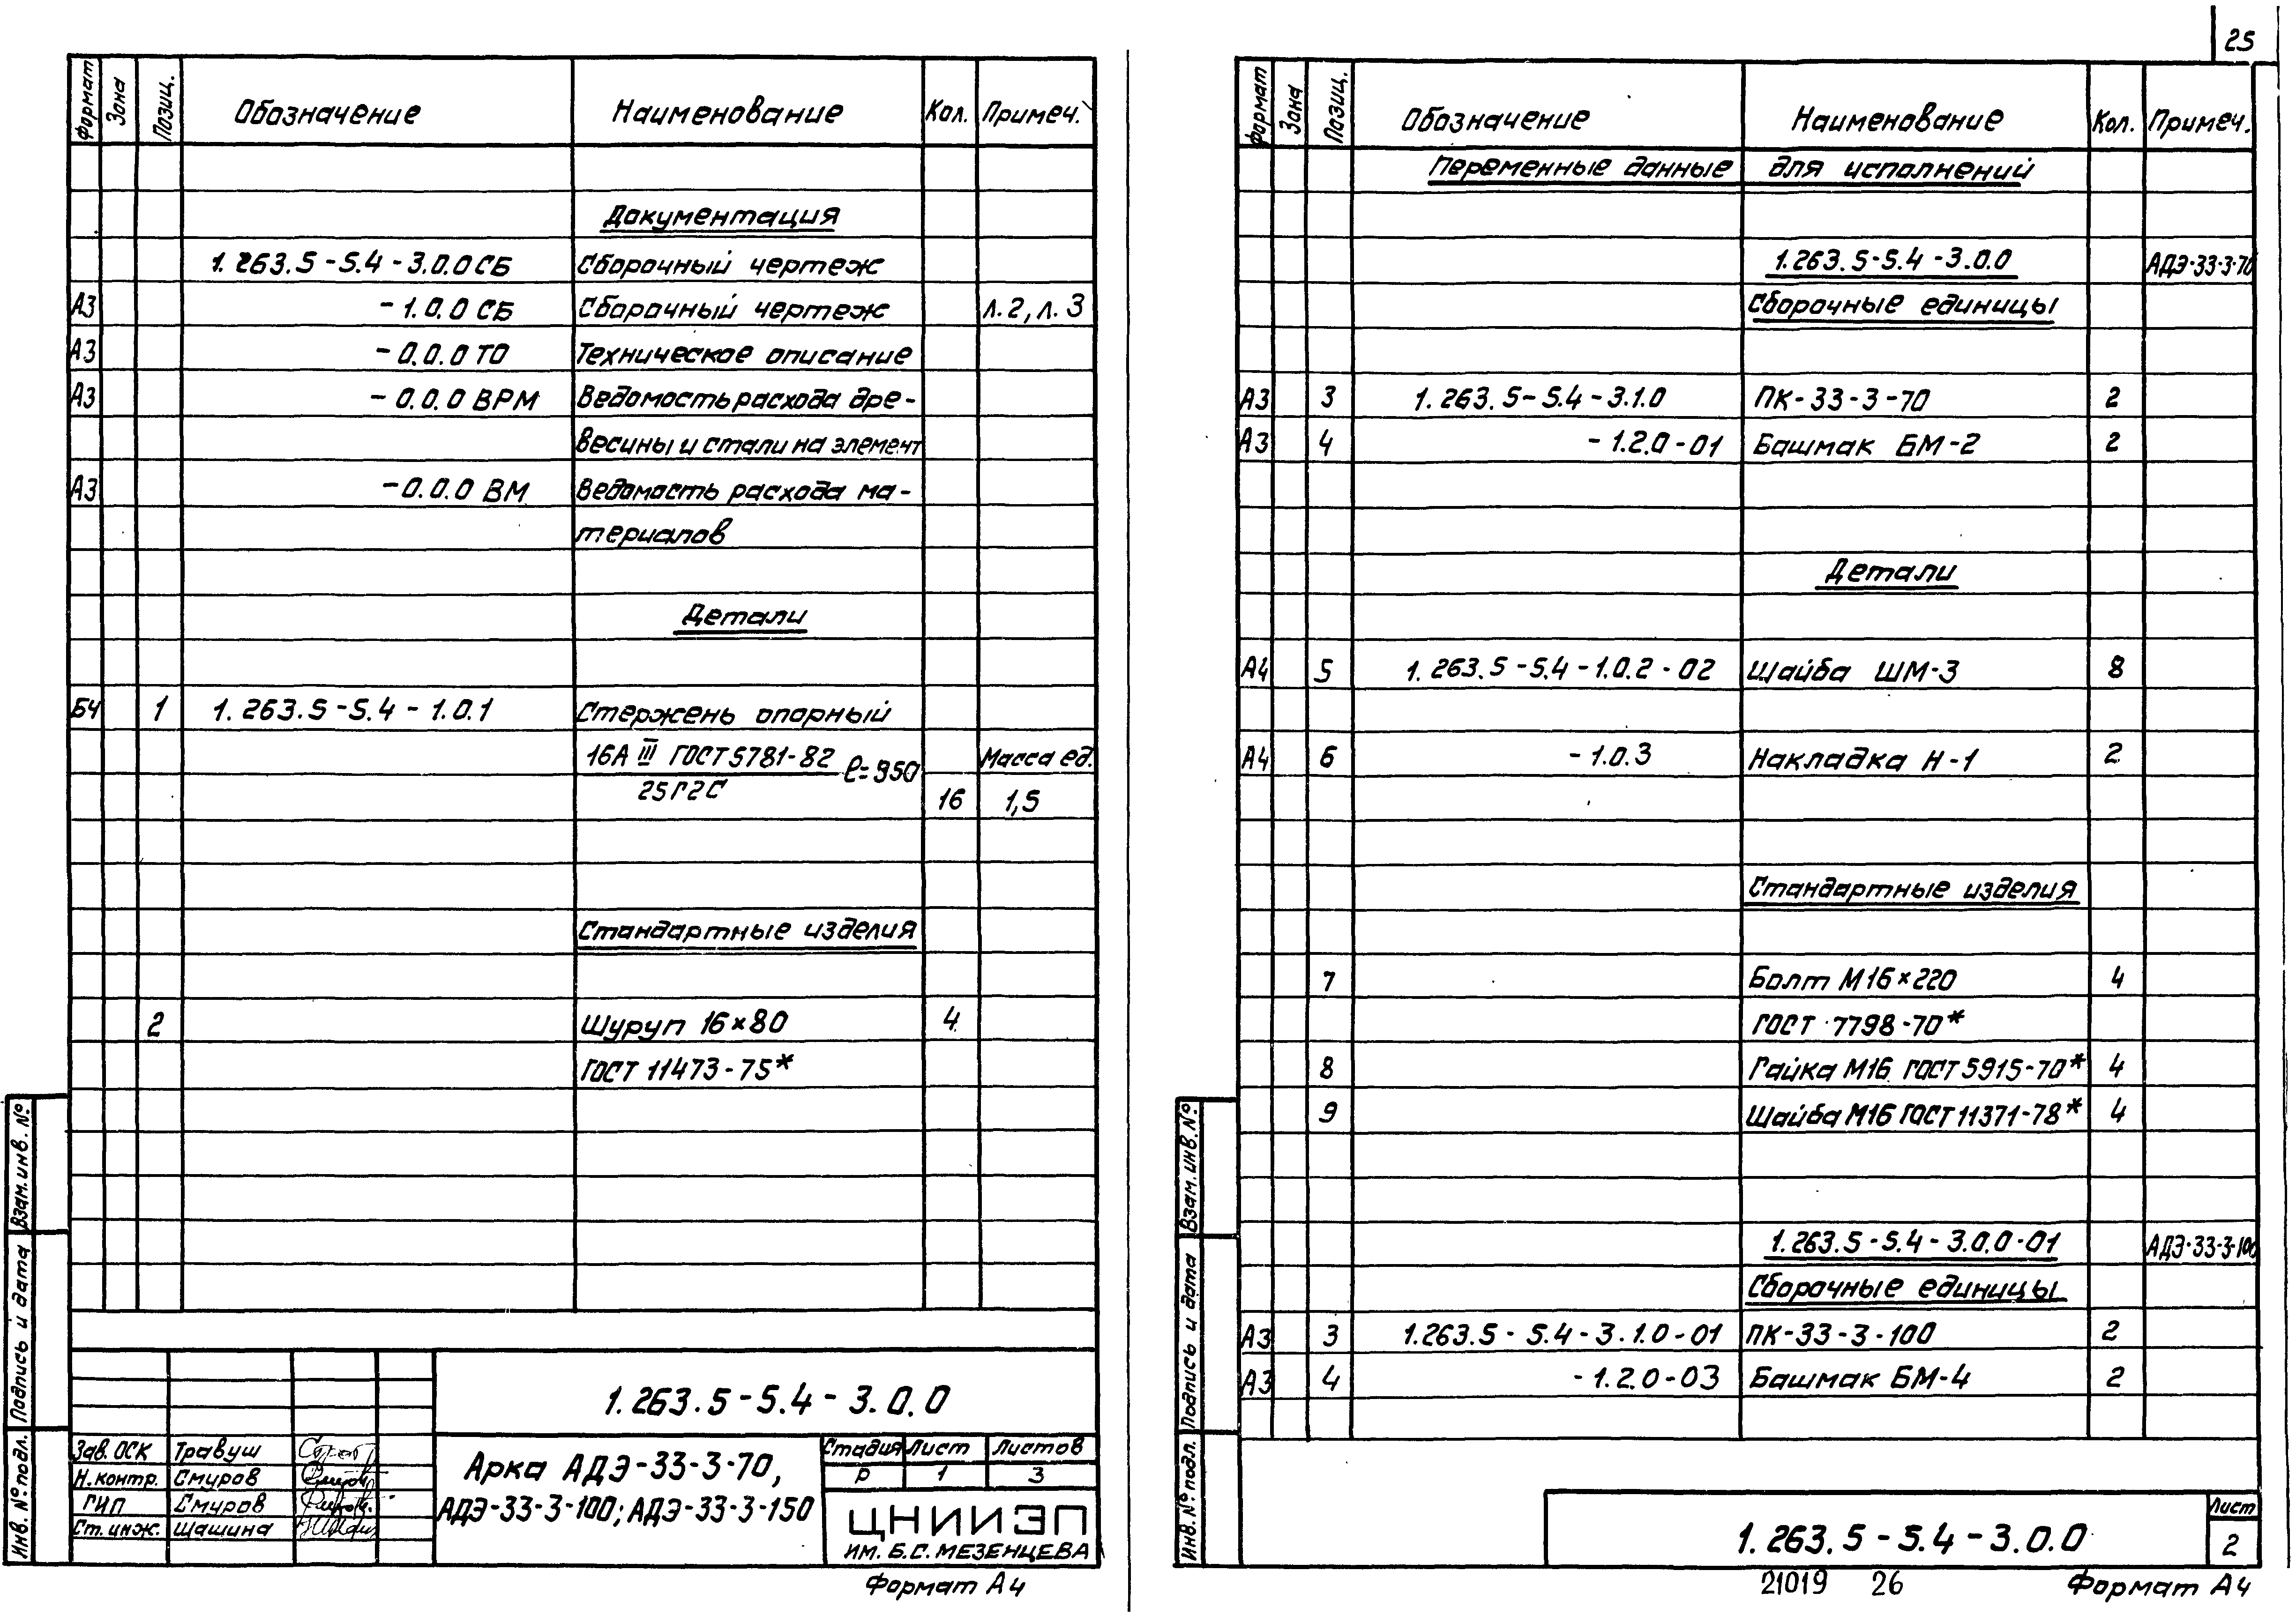 25
Формат Зона Позиц. Обозначение Наименование Кол. Примеч.
Документация
1.263.5-5.4-3.0.0 СБ Сборочный чертеж
А3 -1.0.0 СБ Сборочный чертеж л.2, л.3
А3 -0.0.0 ТО Техническое описание
А3 -0.0.0 ВРМ Ведомость расхода дре-
весины и стали на элемент
А3 -0.0.0 ВМ Ведомость расхода ма-
териалов
Детали
БЧ 1 1.263.5-5.4-1.0.1 Стержень опорный
16А III ГОСТ 5781-82 ℓ=950 Масса ед.
25Г2С 16 1,5
Стандартные изделия
2 Шуруп 16×80 4
ГОСТ 11473-75*
Взам. инв. №
Подпись и дата
Инв. № подл.
1.263.5-5.4-3.0.0
Зав. ОСК Травуш
Н. контр. Смуров
ГИП Смуров
Ст. инж. Шашина
Арка АДЭ-33-3-70,
АДЭ-33-3-100; АДЭ-33-3-150
Стадия Лист Листов
Р 1 3
ЦНИИЭП
ИМ. Б.С. МЕЗЕНЦЕВА
Формат А4
Формат Зона Позиц. Обозначение Наименование Кол. Примеч.
Переменные данные для исполнений
1.263.5-5.4-3.0.0 АДЭ-33-3-70
Сборочные единицы
А3 3 1.263.5-5.4-3.1.0 ПК-33-3-70 2
А3 4 -1.2.0-01 Башмак БМ-2 2
Детали
А4 5 1.263.5-5.4-1.0.2-02 Шайба ШМ-3 8
А4 6 -1.0.3 Накладка Н-1 2
Стандартные изделия
7 Болт М16×220 4
ГОСТ 7798-70*
8 Гайка М16 ГОСТ 5915-70* 4
9 Шайба М16 ГОСТ 11371-78* 4
1.263.5-5.4-3.0.0-01 АДЭ-33-3-100
Сборочные единицы
А3 3 1.263.5-5.4-3.1.0-01 ПК-33-3-100 2
А3 4 -1.2.0-03 Башмак БМ-4 2
Взам. инв. №
Подпись и дата
Инв. № подл.
1.263.5-5.4-3.0.0
Лист
2
21019 26 Формат А4